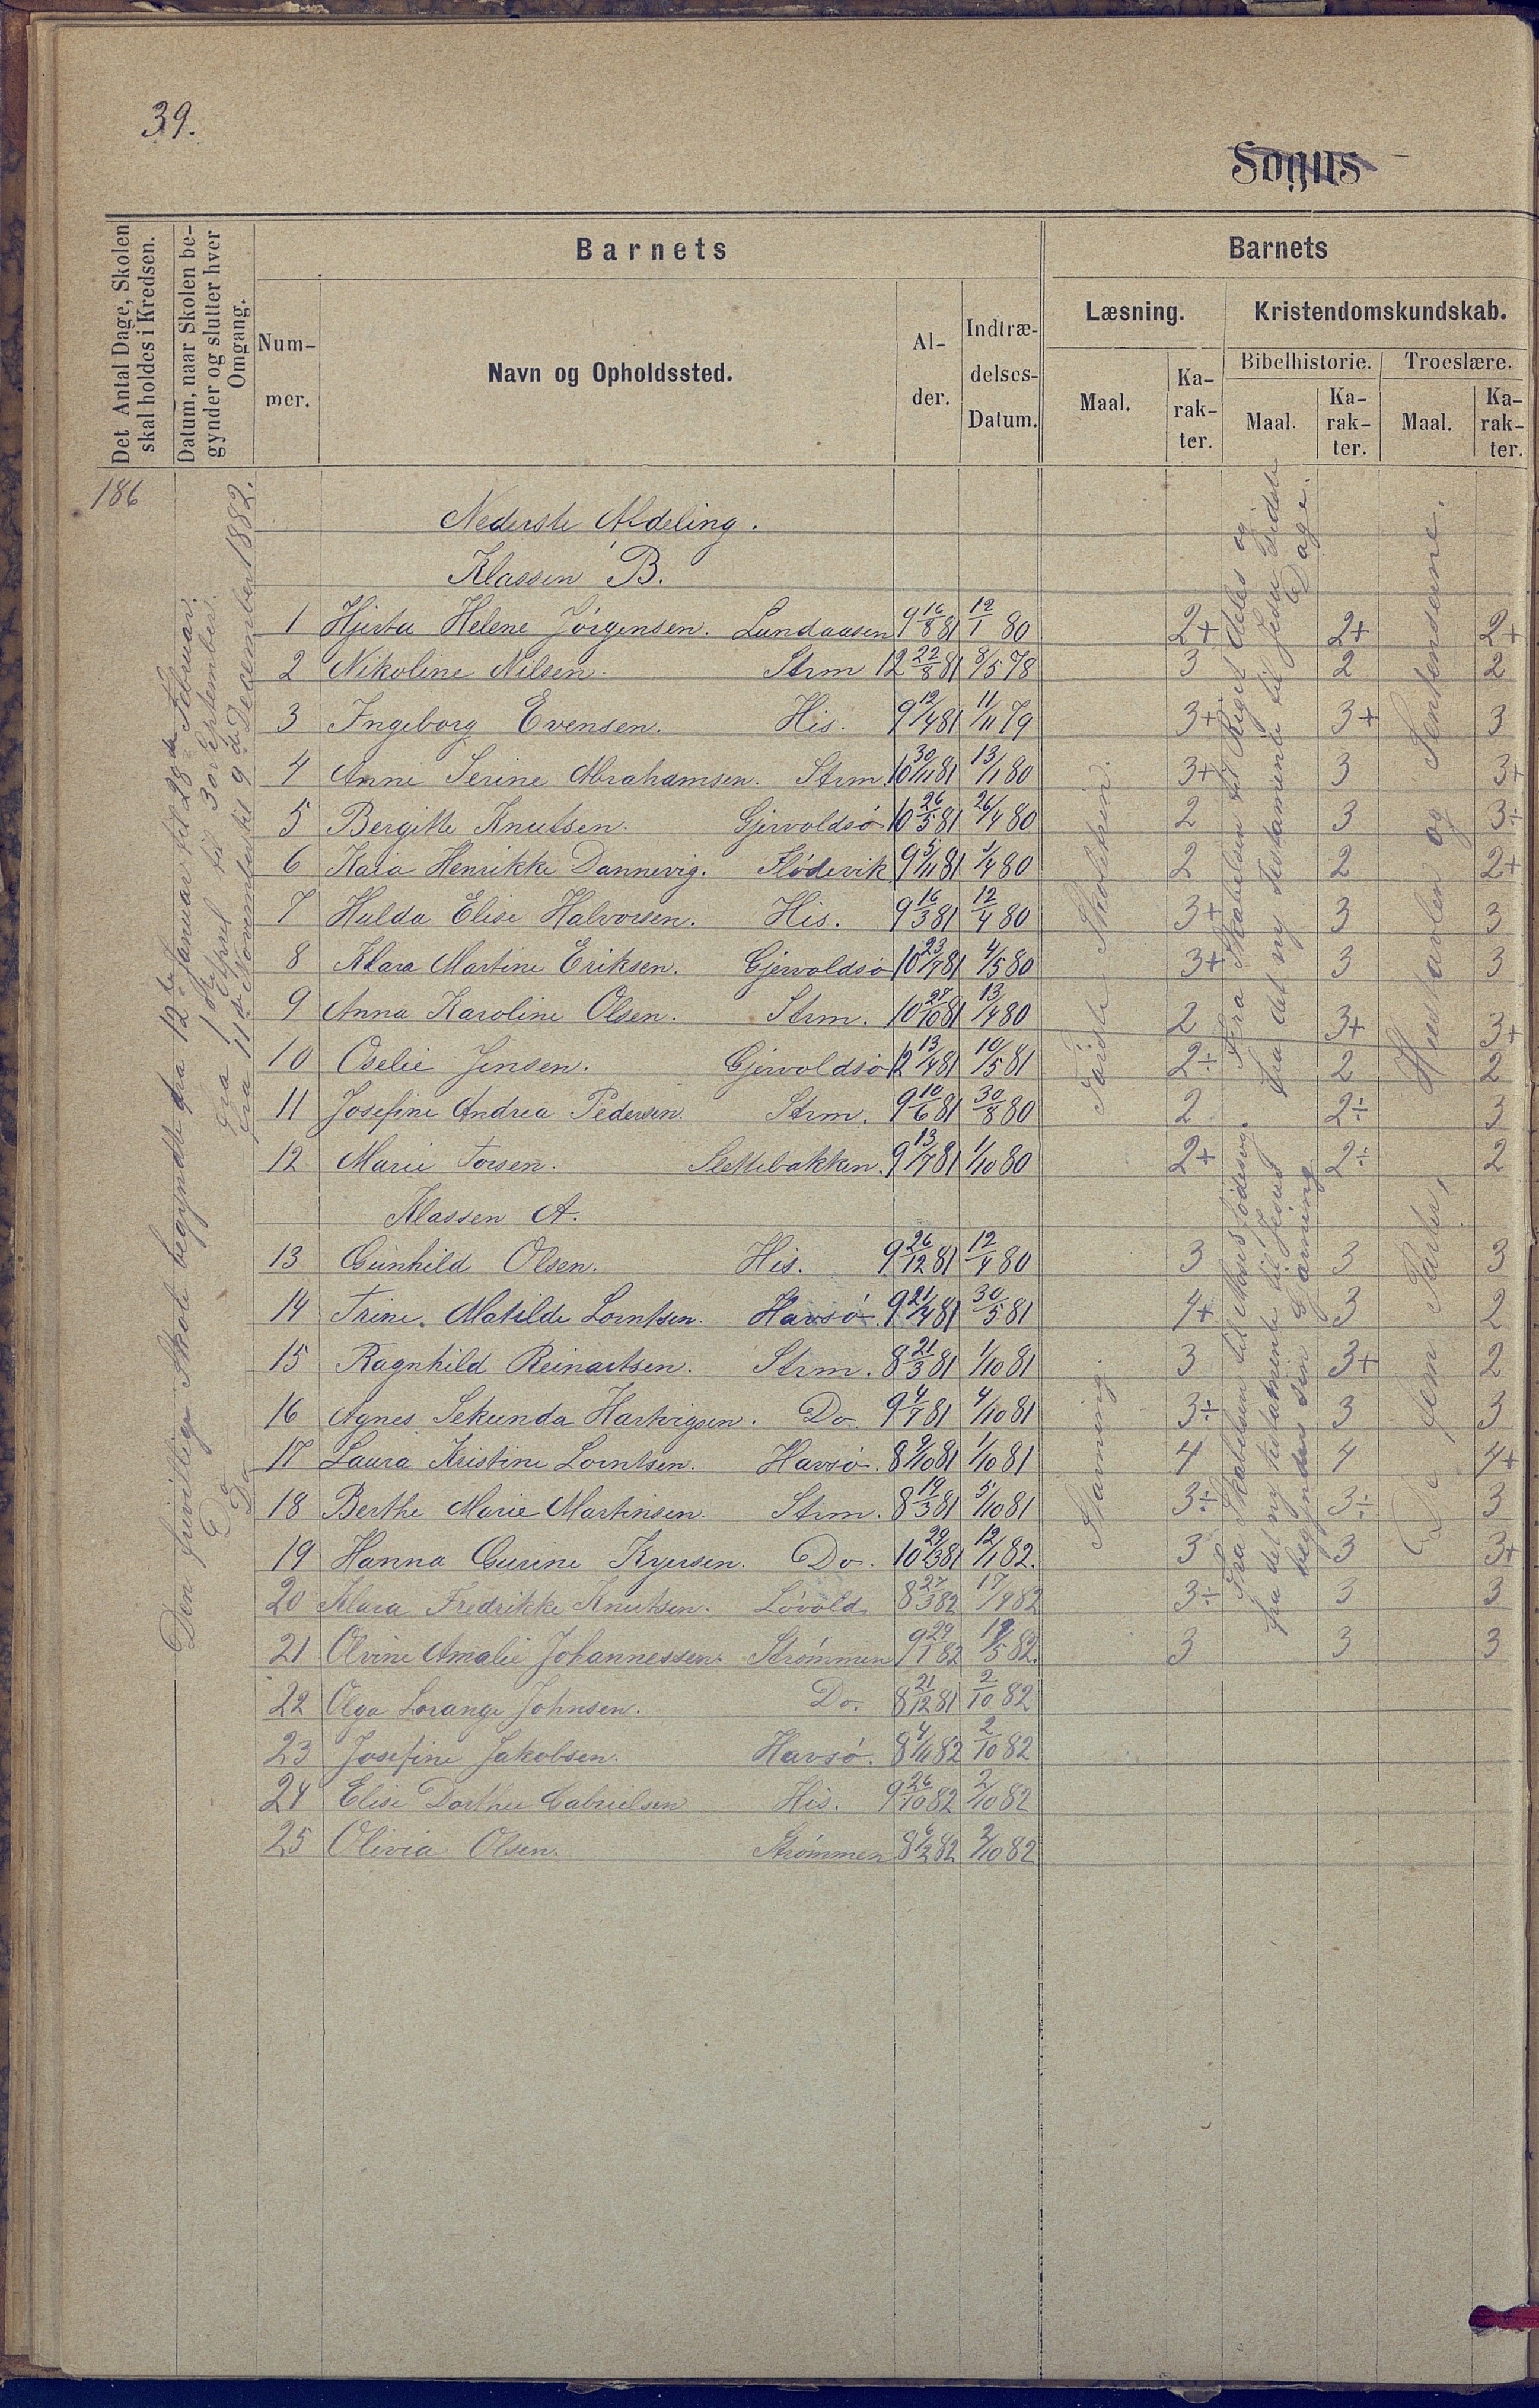 39.
Sogns
Det Antal Dage, Skolen skal holdes i Kredsen.
Datum, naar Skolen begynder og slutter hver Omgang.
Barnets
Barnets
Nummer.
Navn og Opholdssted.
Alder.
Indtrædelses-Datum.
Læsning.
Kristendomskundskab.
Maal.
Karakter.
Bibelhistorie.
Troeslære.
Maal.
Karakter.
Maal.
Karakter.
186
Den frivillige Skole begyndte fra 12te Januar til 28de Februar.
Do fra 1ste April til 30te September.
Do fra 11te November til 9de December 1882.
Nederste Afdeling.
Klassen B.
1 Hjerta Helene Jörgensen. Lundaasen 9 16/8 81 12/1 80 2+ 2+ 2+
2 Nikoline Nilsen. Strm 12 22/8 81 8/5 78 3 2 2
3 Ingeborg Evensen. His. 9 12/4 81 11/11 79 3+ 3+ 3
4 Anne Serine Abrahamsen. Strm. 10 30/11 81 13/1 80 3+ 3 3+
5 Bergitte Knutsen. Gjervoldsö 10 26/5 81 26/4 80 2 3 3÷
6 Kaia Henrikke Dannevig. Flödevik 9 5/11 81 1/4 80 2 2 2+
7 Hulda Elise Halvorsen. His. 9 16/3 81 12/4 80 3+ 3 3
8 Klara Martine Eriksen. Gjervoldsö 10 23/7 81 4/5 80 3+ 3 3
9 Anna Karoline Olsen. Strm. 10 27/10 81 13/4 80 2 3+ 3+
10 Oselie Jensen. Gjervoldsö 12 13/4 81 10/5 81 2÷ 2 2
11 Josefine Andrea Pedersen. Strm. 9 10/6 81 30/8 80 2 2÷ 3
12 Marie Torsen. Slettebakken. 9 13/7 81 1/10 80 2+ 2÷ 2
Første Skoletrin.
Fra Skabelsen til Riget deles og
fra det ny Testamente til Jesu sidste
Dage.
Hustavlen og Sentenserne.
Klassen A.
13 Gunhild Olsen. His. 9 26/12 81 12/4 80 3 3 3
14 Trine Matilde Lorntsen. Havsö. 9 21/4 81 30/5 81 4+ 3 2
15 Ragnhild Reinartsen. Strm. 8 21/3 81 1/10 81 3 3+ 2
16 Agnes Sekunda Hartvigsen. Do 9 4/7 81 4/10 81 3÷ 3 3
17 Laura Kristine Lorntsen. Havsö. 8 9/10 81 1/10 81 4 4 4+
18 Berthe Marie Martinsen. Strm. 8 19/3 81 5/10 81 3÷ 3÷ 3
19 Hanna Gurine Kyersen. Do. 10 29/3 81 12/1 82. 3 3 3+
20 Klara Fredrikke Knutsen. Lövold 8 27/3 82 17/4 82 3÷ 3 3
21 Olvine Amalie Johannessen. Strömmen 9 29/1 82 19/5 82. 3 3 3
22 Olga Lorange Johnsen. Do. 8 21/12 81 2/10 82
23 Josefine Jakobsen. Havsö. 8 4/11 82 2/10 82
24 Elise Dorthee Gabrielsen His. 9 26/10 82 2/10 82
25 Olivia Olsen. Strömmen 8 6/2 82 2/10 82
Stavning.
Fra Skabelsen til Moses födes og
fra det ny Testamente til Jesus
begynder sin Gjerning
De fem Parter,